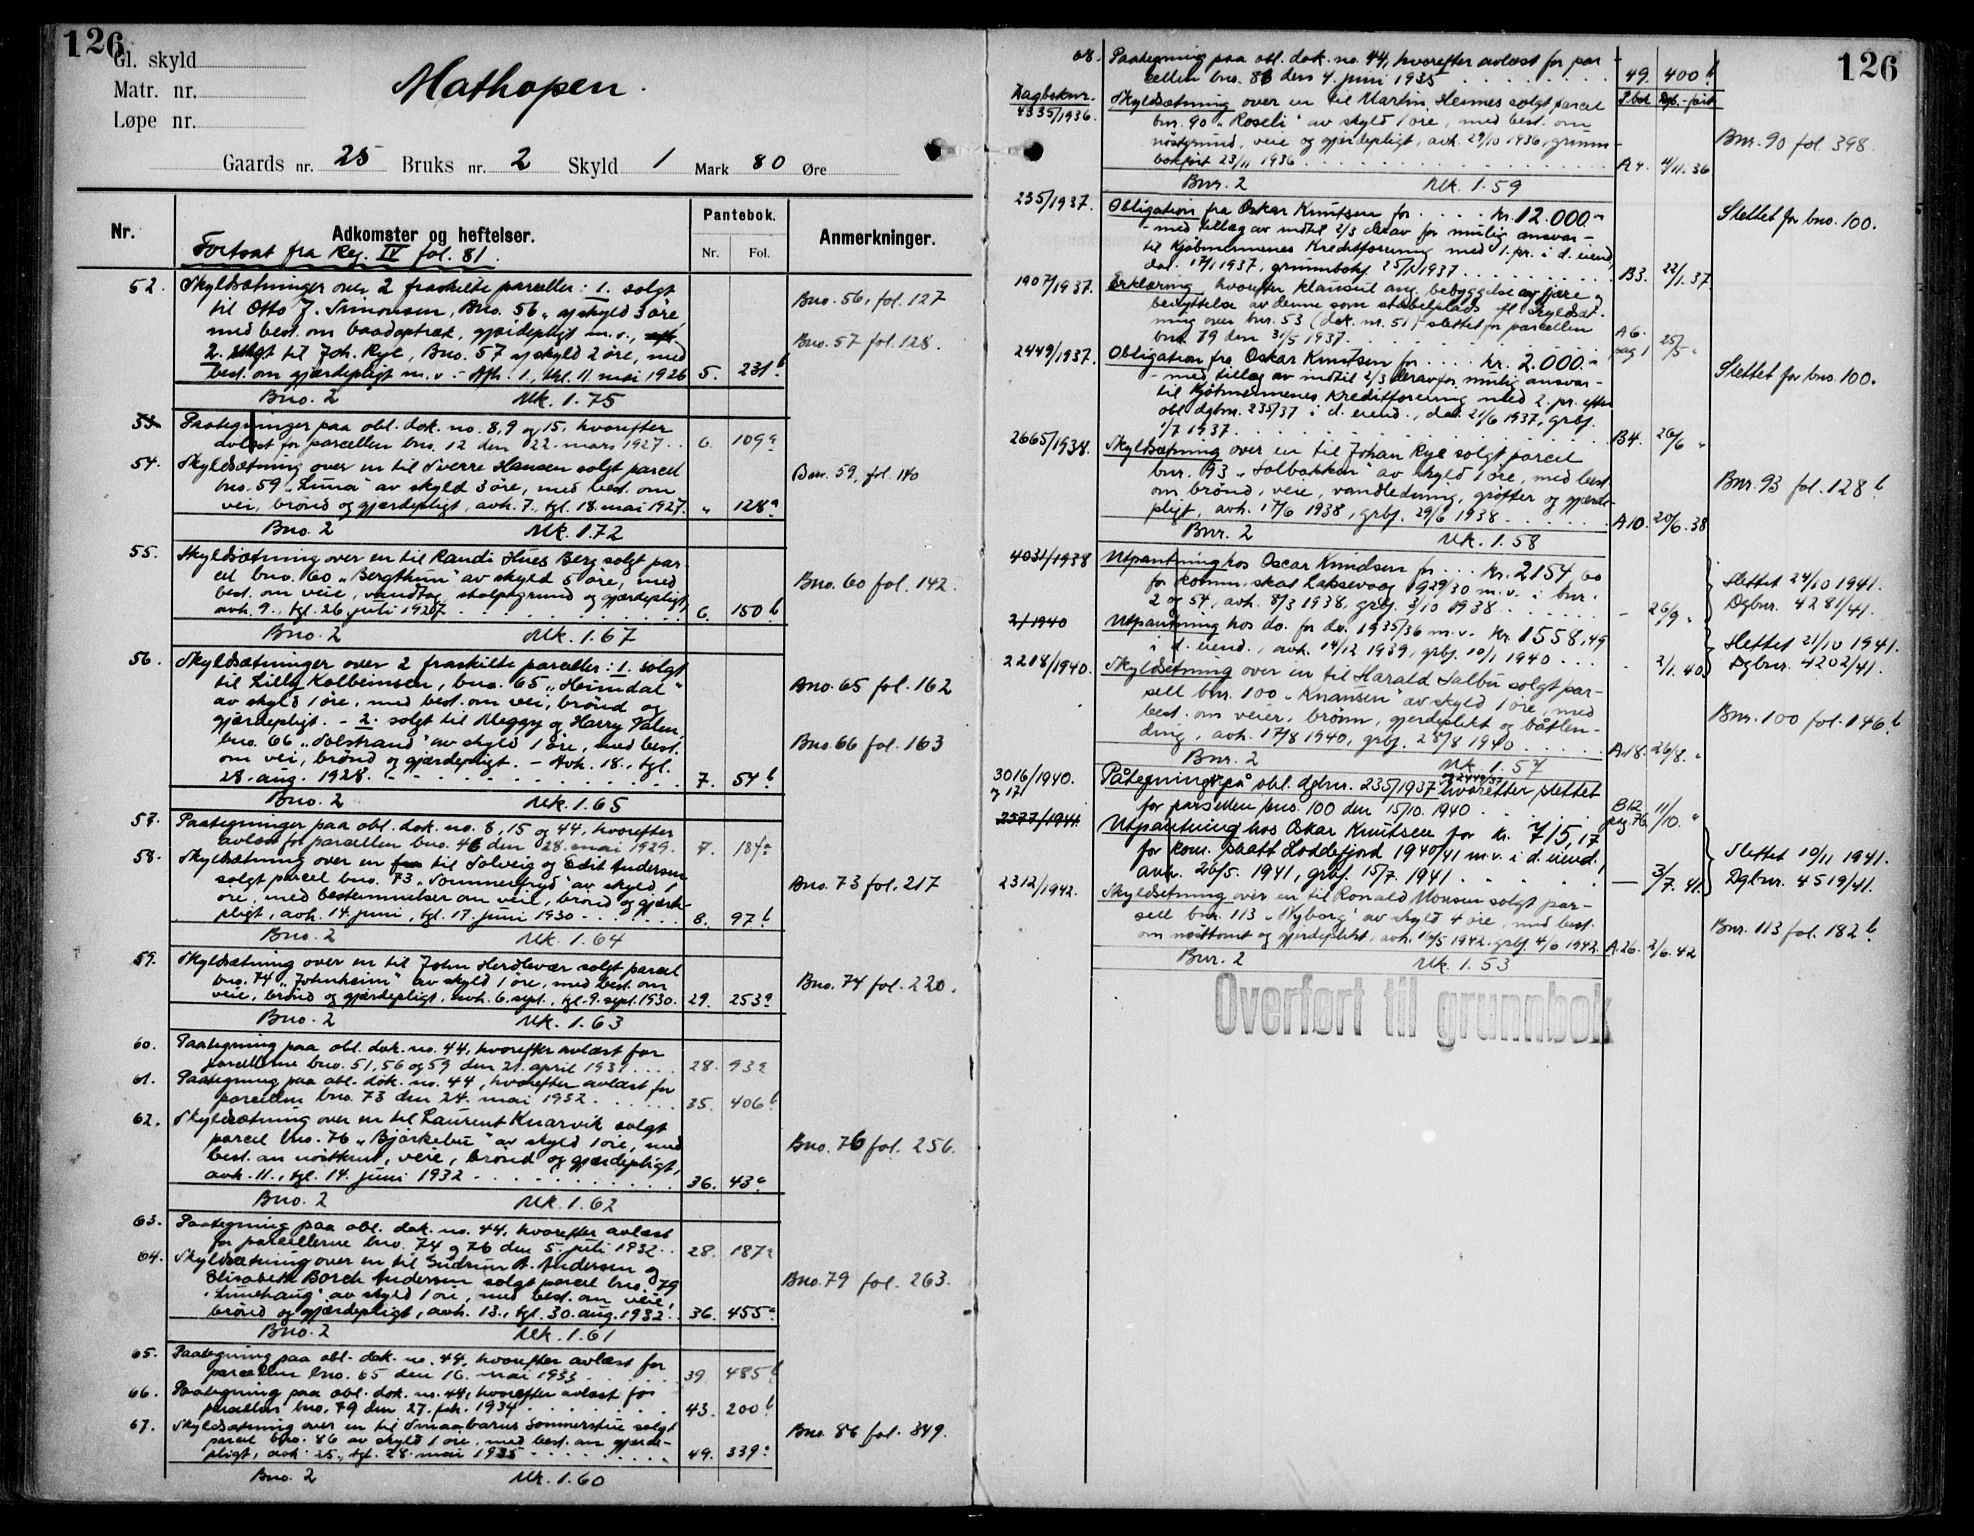 126
Gl. skyld
Matr. nr.
Løpe nr.
Mathopen.
Gaards nr. 25 Bruks nr. 2 Skyld 1 Mark 80 Øre
Nr.
Adkomster og heftelser.
Pantebok.
Nr. Fol.
Anmerkninger.
Fortsat fra Reg. IV fol. 81.
52. Skyldsætninger over 2 fraskilte parceller: 1. solgt
til Otto J. Simonsen, Bno. 56, af skyld 3 øre,
med best. om baadoptræk, gjærdepligt m.v.,
2. solgt til Joh. Rye, Bno. 57 af skyld 2 øre, med
best. om gjærdepligt m.v. - Afh. 1., tgl. 11. mai 1926 5. 231 b
Bno. 56, fol. 127
Bno. 57 fol. 128.
Bno. 2 Mk. 1.75
53 Paategninger paa obl. dok. no. 8, 9 og 15, hvorefter
avløst for parcellen bno. 12 den 22. mars 1927. 6. 109 a
54. Skyldsætning over en til Sverre Hansen solgt parcel
bno. 59 "Luna" av skyld 3 øre, med best. om
vei, brønd og gjærdepligt, avh. 7., tgl. 18. mai 1927. " 128 a
Bno. 59, fol. 140
Bno. 2 Mk. 1.72
55. Skyldsætning over en til Randi Hues Berg solgt par-
cel bno. 60 "Bergthun" av skyld 5 øre, med
best. om veie, vandtag, stolpegrund og gjærdepligt,
avh. 9., tgl. 26. juli 1927. 6. 150 b
Bno. 60 fol. 142.
Bno. 2 Mk. 1.67
56. Skyldsætninger over 2 fraskilte parceller: 1. solgt
til Lilly Kolbeinsen, bno. 65 "Heimdal"
av skyld 1 øre, med best. om vei, brønd og
gjærdepligt. - 2. solgt til Meggy og Harry Valen,
bno. 66 "Solstrand" av skyld 1 øre, med best.
om vei, brønd og gjærdepligt. - Avh. 18., tgl.
28. aug. 1928. 7. 54 b
Bno. 65 fol. 162
Bno. 66 fol. 163
Bno. 2 Mk. 1.65
57. Paategninger paa obl. dok. no. 8, 15 og 44, hvorefter
avløst for parcellen bno. 46 den 28. mai 1929. 7. 187 a
58. Skyldsætning over en fra til Solveig og Edit Andersen
solgt parcel bno. 73 "Sommerfryd" av skyld 1
øre, med bestemmelser om veie, brønd og gjærde-
pligt, avh. 14. juni, tgl. 17. juni 1930 8. 97 b
Bno. 73 fol. 217
Bno. 2 Mk. 1.64
59. Skyldsætning over en til John Herdlevær solgt parcel
bno. 74 "Johnheim" av skyld 1 øre, med best. om
veie, brønd og gjærdepligt, avh. 6. sept., tgl. 9. sept. 1930. 29. 253 a
Bno. 74 fol. 220.
Bno. 2 Mk. 1.63
60. Paategning paa obl. dok. no. 44, hvorefter avløst for
parcellerne bno. 51, 56 og 59 den 21. april 1931 28. 93 a
61. Paategning paa obl. dok. no. 44, hvorefter avløst for
parcellen bno. 73 den 24. mai 1932. 35. 406 b
62. Skyldsætning over en til Laurent Knarvik solgt
parcel bno. 76 "Bjørkebu" av skyld 1 øre, med
best. om nøsttomt, veie, brønd og gjærdepligt,
avh. 11., tgl. 14. juni 1932 36. 43 a
Bno. 76 fol. 256.
Bno. 2 Mk. 1.62
63. Paategning paa obl. dok. no. 44, hvorefter avløst
for parcellerne bno. 74 og 76 den 5. juli 1932. 28. 187 a
64. Skyldsætning over en til Gudrun A. Andersen og
Elisabeth Borch Andersen solgt parcel bno. 79
"Linnehaug" av skyld 1 øre, med best. om veie,
brønd og gjærdepligt, avh. 13., tgl. 30. aug. 1932 36. 455 a
Bno. 79 fol. 263.
Bno. 2 Mk. 1.61
65. Paategning paa obl. dok. no. 44, hvorefter avløst for
parcellen bno. 65 den 16. mai 1933 39. 485 b
66. Paategning paa obl. dok. no. 44, hvorefter avløst for
parcellen bno. 79 den 27. feb. 1934 43. 200 b
67. Skyldsætning over en til Smaabarns Sommerstue solgt
parcel bno. 86 av skyld 1 øre, med best. om gjærde-
pligt, avh. 25., tgl. 28. mai 1935 49. 339 a
Bno. 86 fol. 349.
Bno. 2 Mk. 1.60
126
68. Paategning paa obl. dok. no. 44, hvorefter avløst for par-
cellen bno. 86 den 4. juni 1935 49. 400 b
Dagboknr. P.bok Dgb.-ført
4335/1936. Skyldsætning over en til Martin Hennes solgt parcel
bnr. 90 "Roseli" av skyld 1 øre, med best. om
nøstgrund, veie og gjærdepligt, avh. 29/10 1936, grunn-
bokført 23/11 1936 A4. 4/11. 36
Bnr. 90 fol. 398.
Bnr. 2 Mk. 1.59
235/1937. Obligation fra Oskar Knutsen for kr. 12.000.-
- med tillæg av indtil 2/3 derav for mulig ansvar -
til Kjøbmennenes Kreditforening med 1. pr. i d. eiend.,
dat. 17/1 1937, grunnbokf. 25/1 1937 B3. 22/1. 37.
Slettet for bno. 100.
1907/1937. Erklæring hvorefter klausul ang. bebyggelse av fjære og
benyttelse av denne som stabelplads fl. Skyldsæt-
ning over bnr. 53 (dok. nr. 51) slettet for parcellen
bno. 79 den 31/5 1937. A6. pag 1 25/5 "
2449/1937. Obligation fra Oskar Knutsen for kr. 2.000.-
- med tillæg av indtil 2/3 derav for mulig ansvar -
til Kjøbmennenes Kreditforening med 2. pr. efter
obl. dgbnr. 235/37 i d. eiend., dat. 21/6 1937, grbf.
1/7 1937. B4. 26/6 "
Slettet for bno. 100.
2665/1938. Skyldsætning over en til Johan Rye solgt parcel
bnr. 93 "Solbakken" av skyld 1 øre, med best.
om brønd, veie, vandledning, grøfter og gjærde-
pligt, avh. 17/6 1938, grbf. 29/6 1938 A10. 20/6. 38
Bnr. 93 fol. 128 b
Bnr. 2 Mk. 1.58
4031/1938 Utpantning hos Oscar Knudsen for kr. 2154,60
for komm. skat Laksevaag 1929/30 m.v. i bnr.
2 og 54, avh. 8/3 1938, grbf. 3/10 1938 - 26/9 "
Slettet 24/10 1941.
Dgbnr. 4281/41.
2/1940 Utpantning hos do. for do. 1935/36 m.v. kr. 1558,49
i d. eiend., avh. 14/12 1939, grbf. 10/1 1940 - 2/1. 40
Slettet 21/10 1941.
Dgbnr. 4202/41.
2218/1940. Skyldsetning over en til Harald Salbu solgt par-
sell bnr. 100 "Knausen" av skyld 1 øre, med
best. om veier, brønn, gjerdeplikt og båtlen-
ding, avh. 17/8 1940, grbf. 28/8 1940 A18. 26/8. "
Bnr. 100 fol. 146 b
Bnr. 2 Mk. 1.57
3016/1940. og 17/ Påtegninger på obl. dgbnr. 235/1937 og 2449/37 hvoretter slettet
for parsellen bno. 100 den 15/10. 1940 B12 pag. 76. 11/10. "
2577/1941. Utpantning hos Oskar Knutsen for kr. 715,17
for kom. skatt Loddefjord 1940/41 m.v. i d. eiend.,
avh. 26/5. 1941, grbf. 15/7. 1941 - 3/7. 41.
Slettet 10/11 1941.
Dgbnr. 4519/41.
2312/1942. Skyldsetning over en til Ronald Monsen solgt par-
sell bnr. 113 "Nyborg" av skyld 4 øre, med best.
om nøsttomt og gjerdeplikt, avh. 16/5 1942. grbf. 4/6 1942 A26. 2/6. 42
Bnr. 113 fol. 182 b
Bnr. 2 Mk. 1.53
Overført til grunnbok